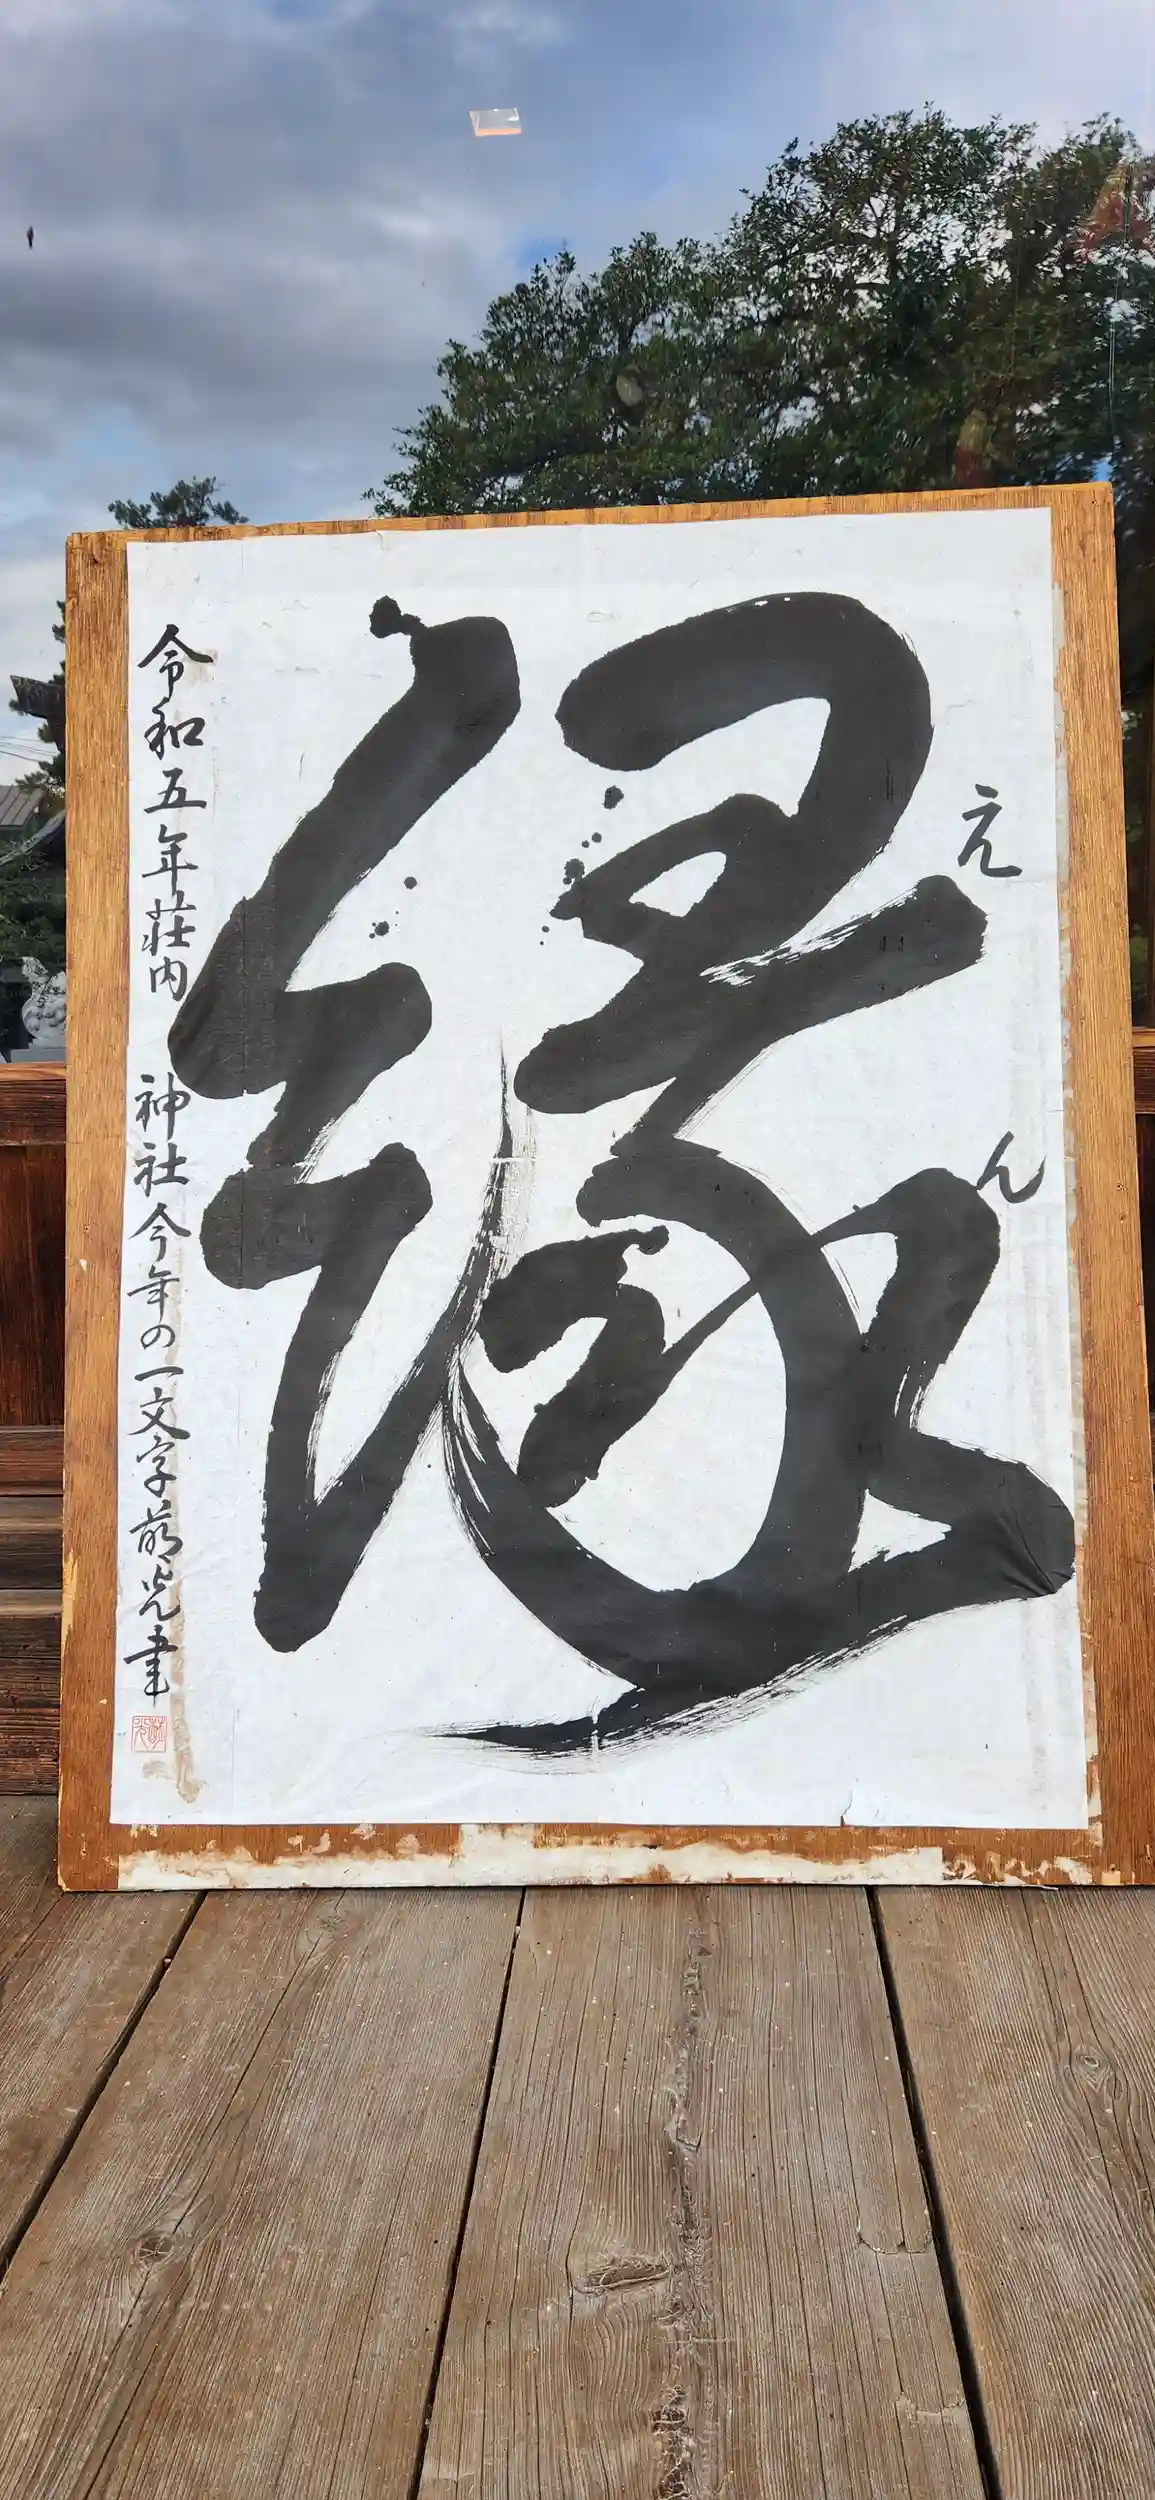 縁
えん
令和五年荘内神社今年の一文字萠光書